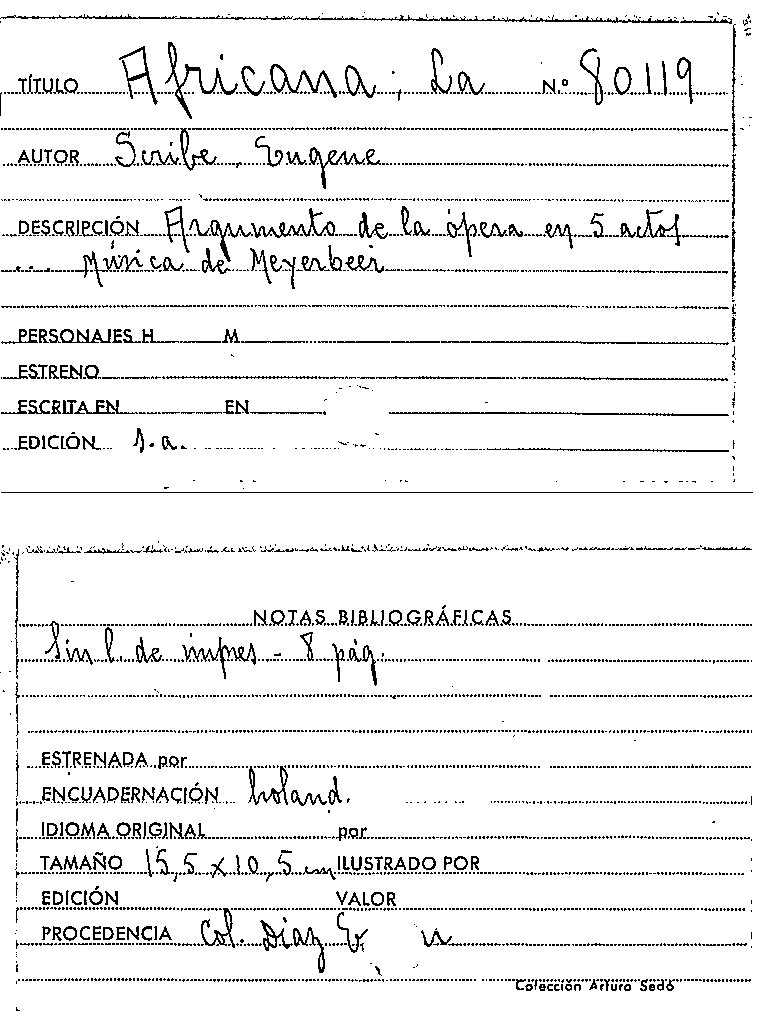 TÍTULO Africana; La Nº 80119
AUTOR Scribe, Eugene
DESCRIPCIÓN Argumento de la ópera en 5 actos
... Música de Meyerbeer
PERSONAJES H M
ESTRENO
ESCRITA EN EN
EDICIÓN s.a.
NOTAS BIBLIOGRÁFICAS
Sin l. de impres - 8 pág.
ESTRENADA por
ENCUADERNACIÓN holand.
IDIOMA ORIGINAL por
TAMAÑO 15,5 x 10,5 cm ILUSTRADO POR
EDICIÓN VALOR
PROCEDENCIA Col. Díaz
Colección Arturo Sedó